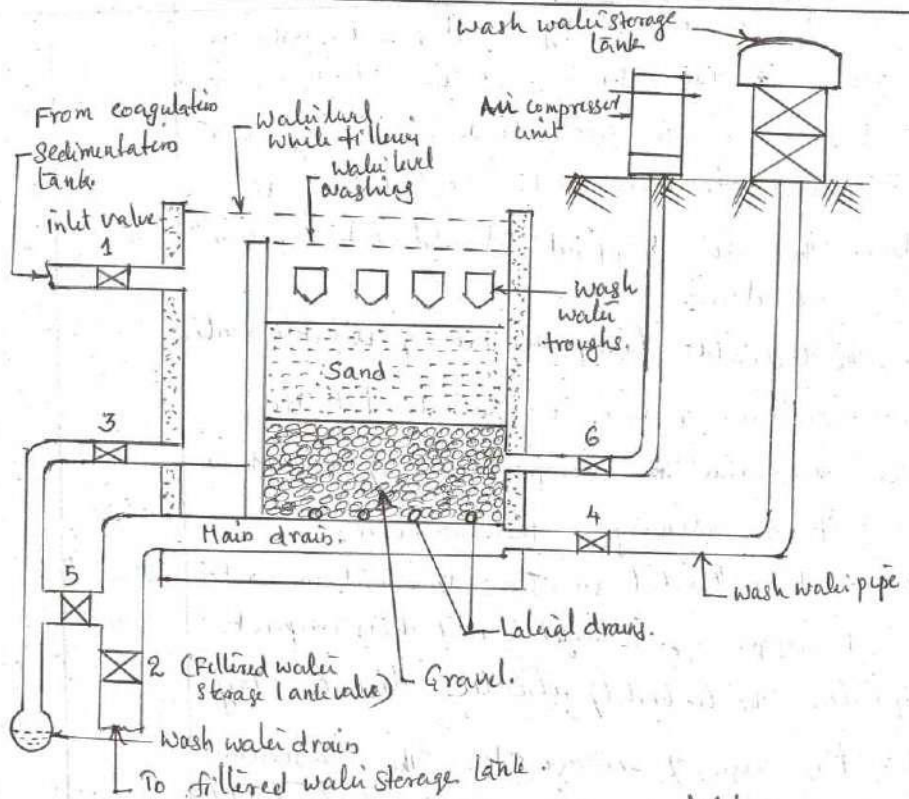 wash water storage
tank
Air compressor
unit
From coagulation
sedimentation
tank.
water level
while filtering
water level
washing
inlet valve
1
wash
water
troughs.
Sand
3
6
4
Main drain.
5
wash water pipe
Lateral drains.
2 (Filtered water
storage tank valve)
Gravel.
wash water drain
To filtered water storage tank.